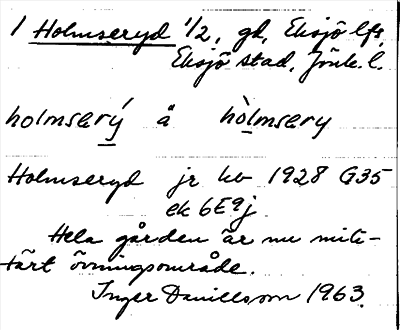 1 Holmseryd 1/2, gd, Eksjö lfs,
Eksjö stad, Jönk. l.
holmserý å hòlmsery
Holmseryd jr kv 1928 G35
ek 6E9j
Hela gården är nu mili-
tärt övningsområde.
Inger Danielsson 1963.